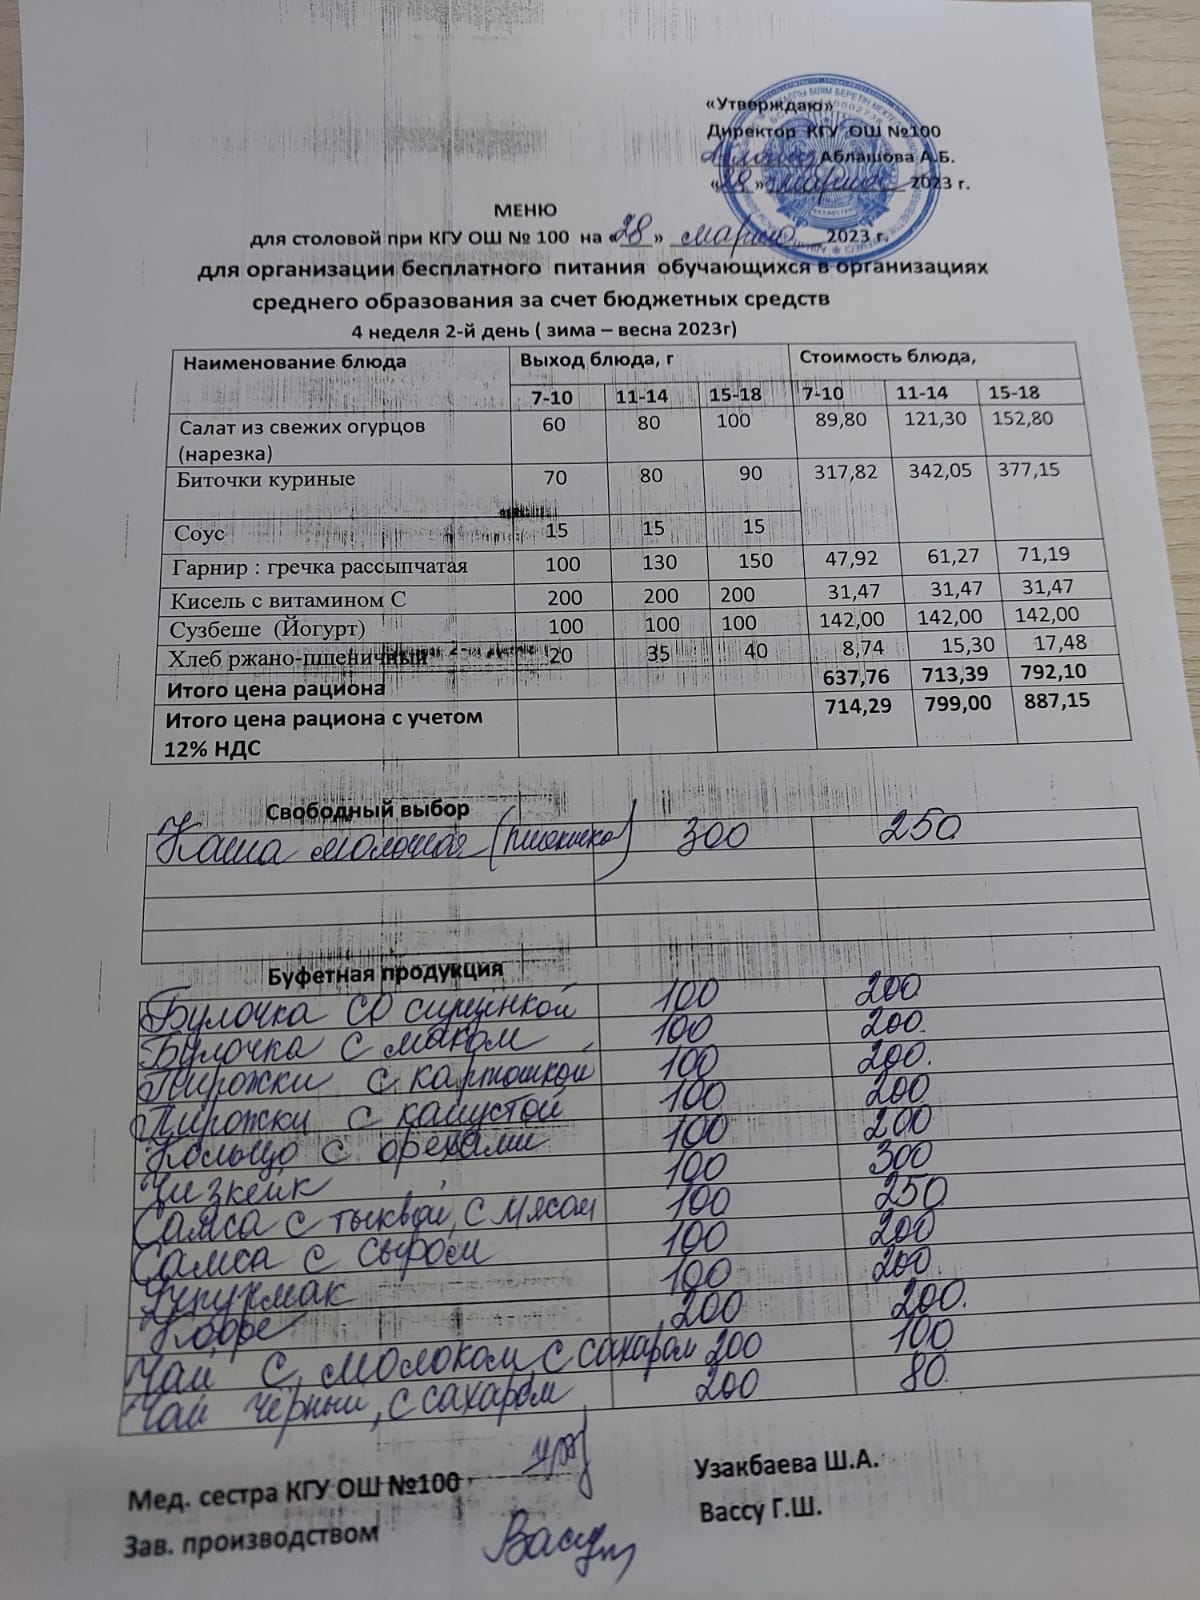 «Утверждаю»
Директор КГУ ОШ №100
Аблашова А.Б.
«28» марта 2023 г.
МЕНЮ
для столовой при КГУ ОШ № 100 на «28» марта 2023 г.
для организации бесплатного питания обучающихся в организациях
среднего образования за счет бюджетных средств
4 неделя 2-й день ( зима – весна 2023г)
Наименование блюда Выход блюда, г Стоимость блюда,
7-10 11-14 15-18 7-10 11-14 15-18
Салат из свежих огурцов 60 80 100 89,80 121,30 152,80
(нарезка)
Биточки куриные 70 80 90 317,82 342,05 377,15
Соус 15 15 15
Гарнир : гречка рассыпчатая 100 130 150 47,92 61,27 71,19
Кисель с витамином С 200 200 200 31,47 31,47 31,47
Сузбеше (Йогурт) 100 100 100 142,00 142,00 142,00
Хлеб ржано-пшеничный 20 35 40 8,74 15,30 17,48
Итого цена рациона 637,76 713,39 792,10
Итого цена рациона с учетом 714,29 799,00 887,15
12% НДС
Свободный выбор
Каша молочная 300 250
Буфетная продукция
Булочка со сгущенкой 100 200
Булочка с маком 100 200.
Пирожки с картошкой 100 200.
Пирожки с капустой 100 200
Кольцо с орехами 100 200
Чизкейк 100 300
Самса с тыквой, с мясом 100 250
Самса с сыром 100 200
100 200.
Кофе 200 200.
Чай с молоком с сахаром 200 100
Чай черный, с сахаром 200 80.
Мед. сестра КГУ ОШ №100 Узакбаева Ш.А.
Зав. производством Вассу Г.Ш.